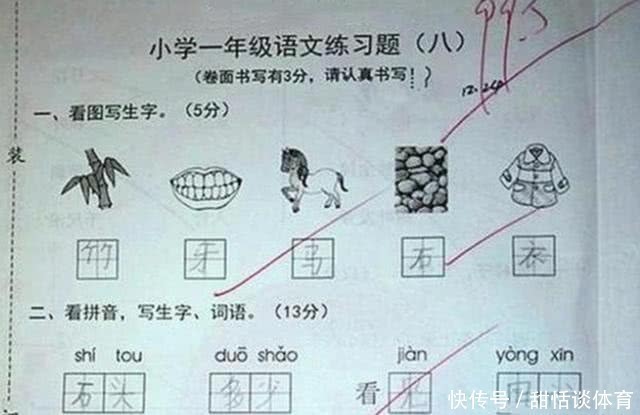 99.5
小学一年级语文练习题（八）
（卷面书写有3分，请认真书写!）
12.24
一、看图写生字。（5分）
装
竹 牙 马 石 衣
二、看拼音，写生字、词语。（13分）
shí tou duō shǎo jiàn yòng xīn
石头 多少 看见 用心
快传号/甜恬谈体育